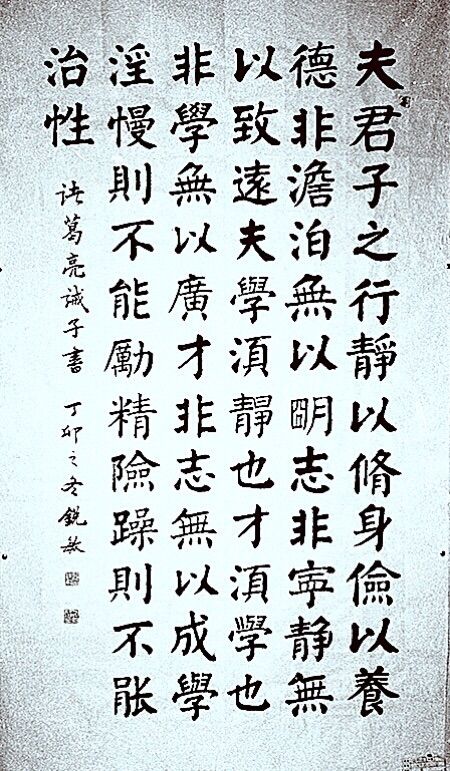 夫君子之行靜以脩身儉以養
德非澹泊無以明志非寧靜無
以致遠夫學湏靜也才湏學也
非學無以廣才非志無以成學
淫慢則不能勵精險躁則不能
治性
諸葛亮誡子書 丁卯之冬銳敏